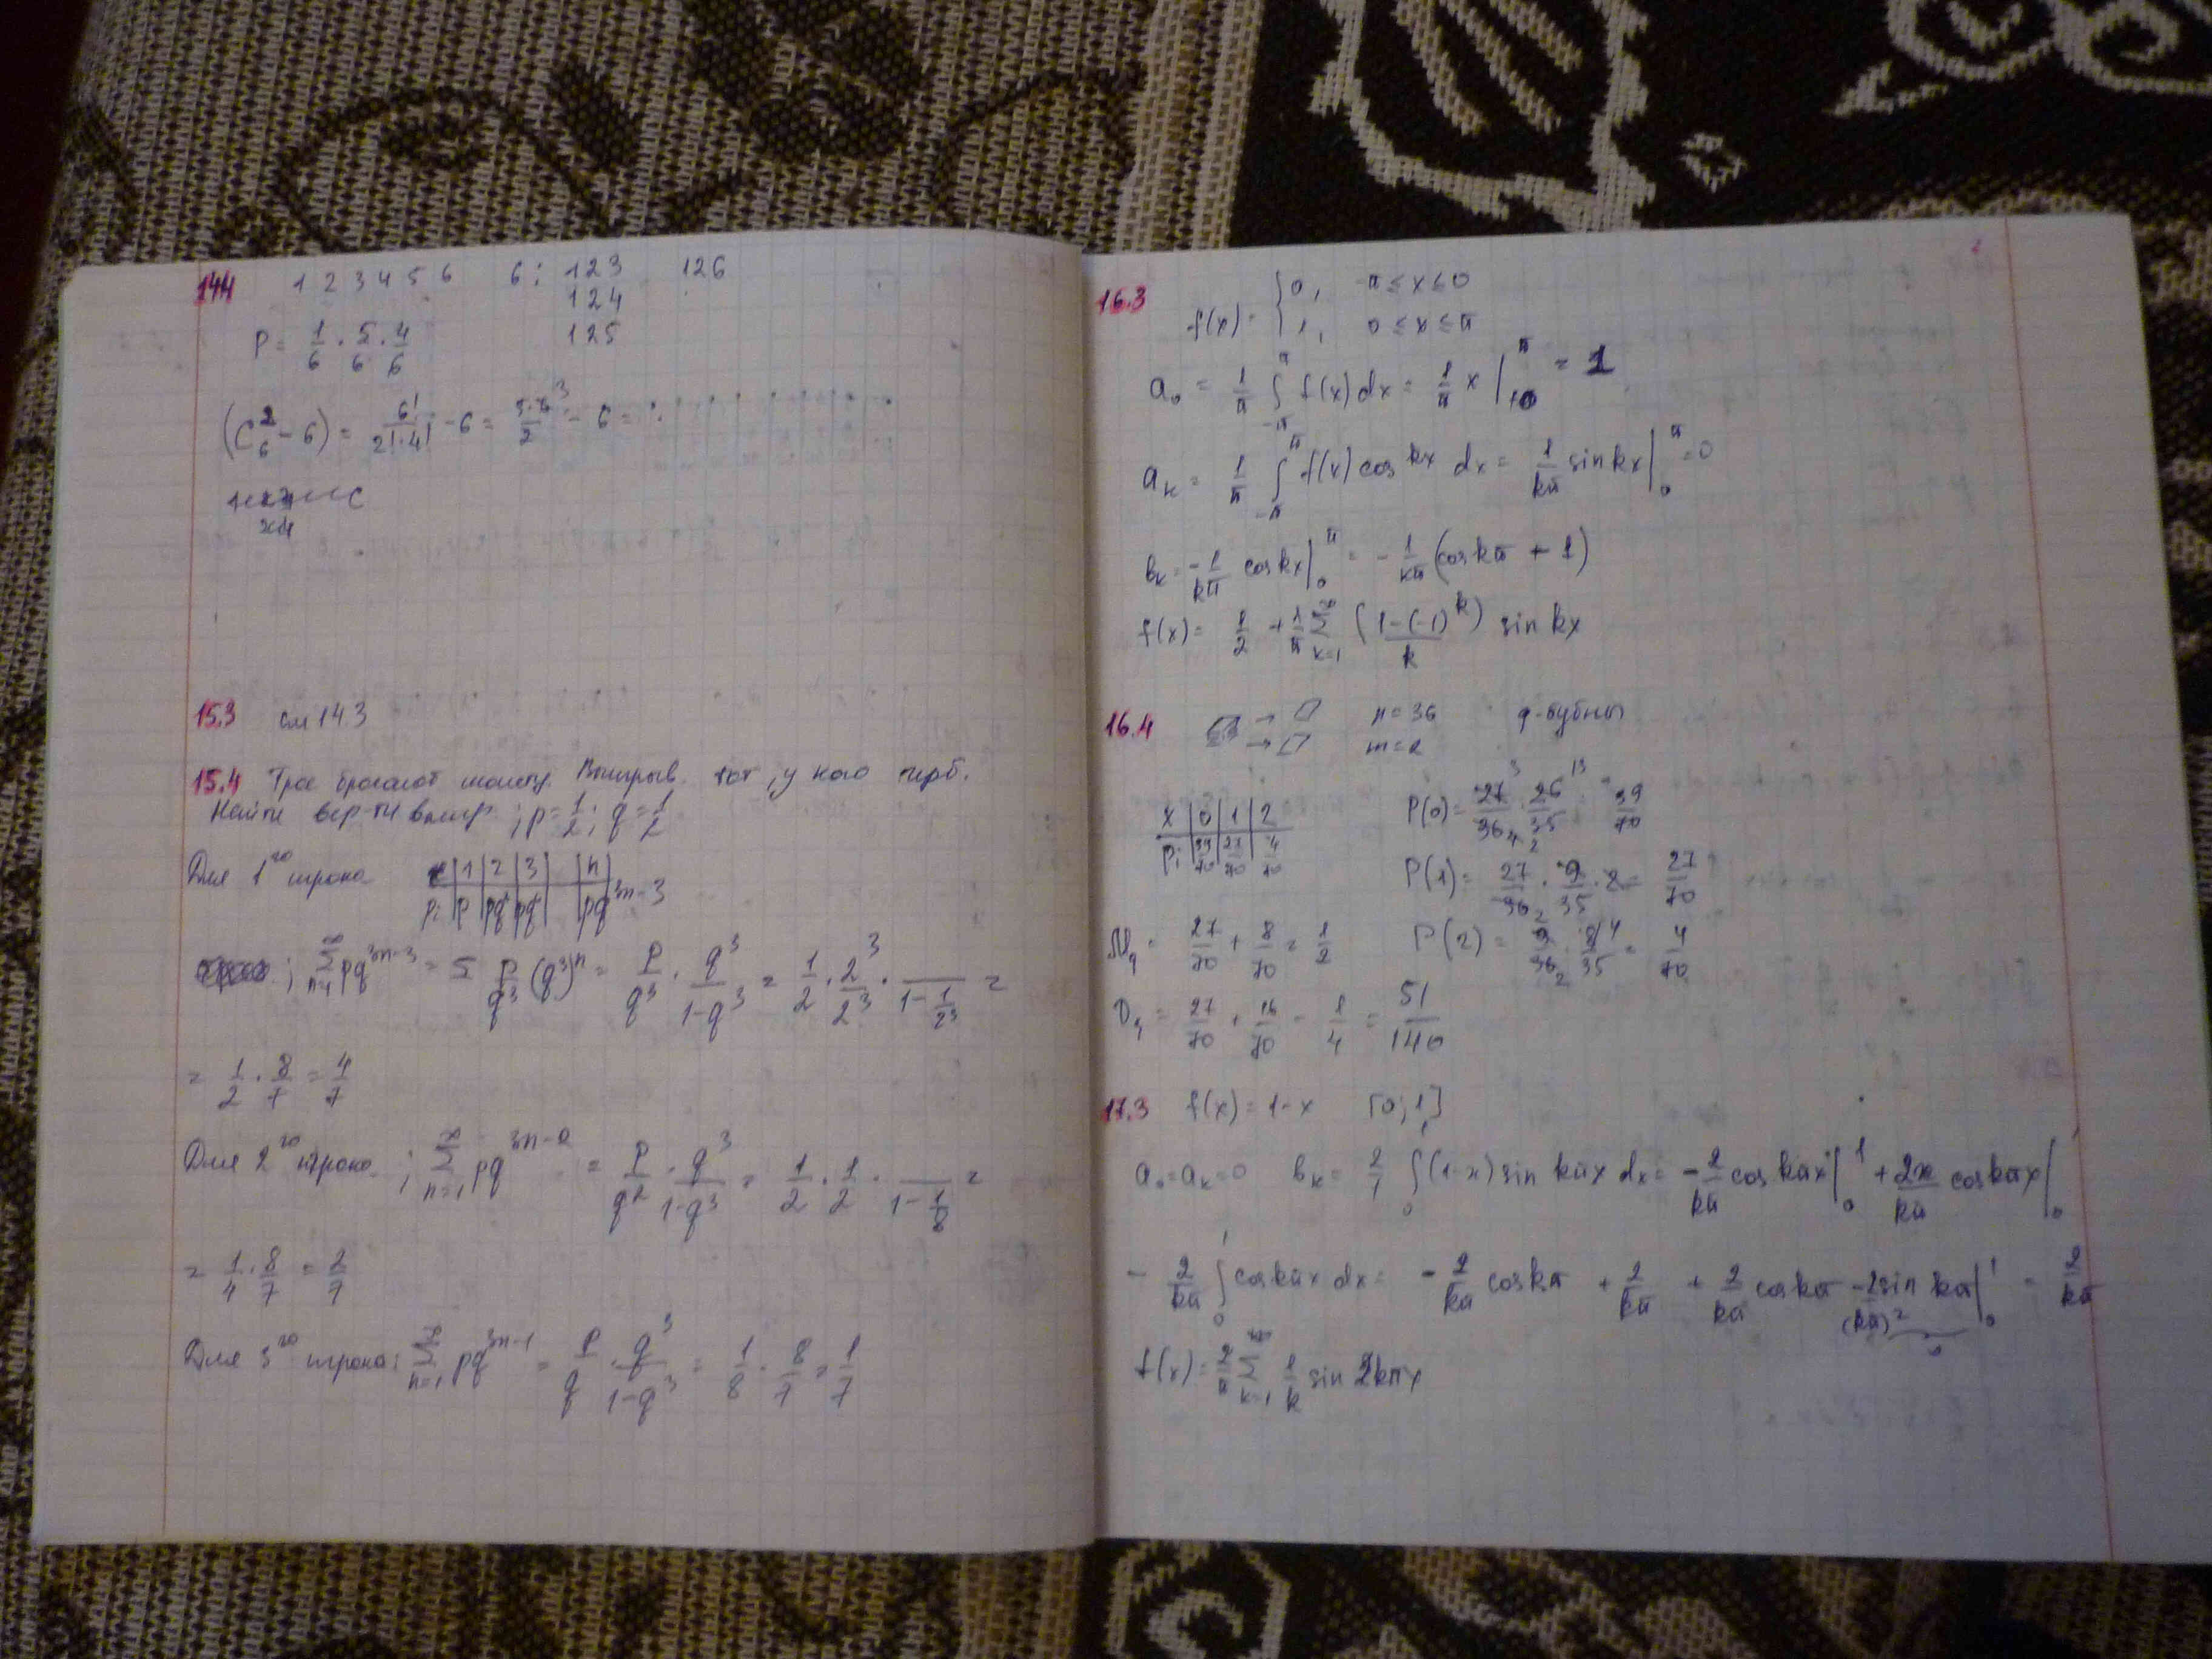 144 1 2 3 4 5 6 6: 123 126
124
P = 1/6 · 5/6 · 4/6 125
(C₆² - 6) = 6!/(2!·4!) - 6 = 5·6³/2 - 6 =
15.3 см 14.3
15.4 Трое бросают монету. Выигрыв. тот, у кого герб.
Найти вер-ти выигр. ; p = 1/2 ; q = 1/2
Для 1го игрока | 1 | 2 | 3 | | n
pi | p | pq | pq | | pq^(3n-3)
; ∑_(n=1)^∞ pq^(3n-3) = ∑ p/q³ (q³)^n = p/q³ · q³/(1-q³) = 1/2 · 2³/2³ · 1/(1-1/2³) =
= 1/2 · 8/7 = 4/7
Для 2го игрока ; ∑_(n=1)^∞ pq^(3n-2) = p/q² · q³/(1-q³) = 1/2 · 1/2 · 1/(1-1/8) =
= 1/4 · 8/7 = 2/7
Для 3го игрока: ∑_(n=1)^∞ pq^(3n-1) = p/q · q³/(1-q³) = 1/8 · 8/7 = 1/7
2
16.3 f(x) = { 0, -π ≤ x ≤ 0
1, 0 ≤ x ≤ π
a₀ = 1/π ∫_(-π)^π f(x) dx = 1/π x |₀^π = 1
aₖ = 1/π ∫_(-π)^π f(x) cos kx dx = 1/(kπ) sin kx |₀^π = 0
bₖ = -1/(kπ) cos kx |₀^π = -1/(kπ) (cos kπ + 1)
f(x) = 1/2 + 1/π ∑_(k=1)^∞ (1-(-1)^k)/k sin kx
16.4 → n = 36 9-бубны
→ m = 2
x | 0 | 1 | 2
pi | 39/70 | 27/70 | 4/70
P(0) = 27³/36₄ · 26¹³/35 = 39/70
P(1) = 27/36₂ · 9/35 · 2 = 27/70
P(2) = 9/36₂ · 8⁴/35 = 4/70
M = 27/70 + 8/70 = 1/2
D = 27/70 + 16/70 - 1/4 = 51/140
17.3 f(x) = 1-x [0; 1]
a₀ = aₖ = 0 bₖ = 2/1 ∫₀¹ (1-x) sin kπx dx = -2/(kπ) cos kπx |₀¹ + 2x/(kπ) cos kπx |₀¹
- 2/(kπ) ∫₀¹ cos kπx dx = -2/(kπ) cos kπ + 2/(kπ) + 2/(kπ) cos kπ - 2 sin kπ/(kπ)² |₀¹ = 2/(kπ)
0
f(x) = 2/π ∑_(k=1)^∞ 1/k sin 2kπx